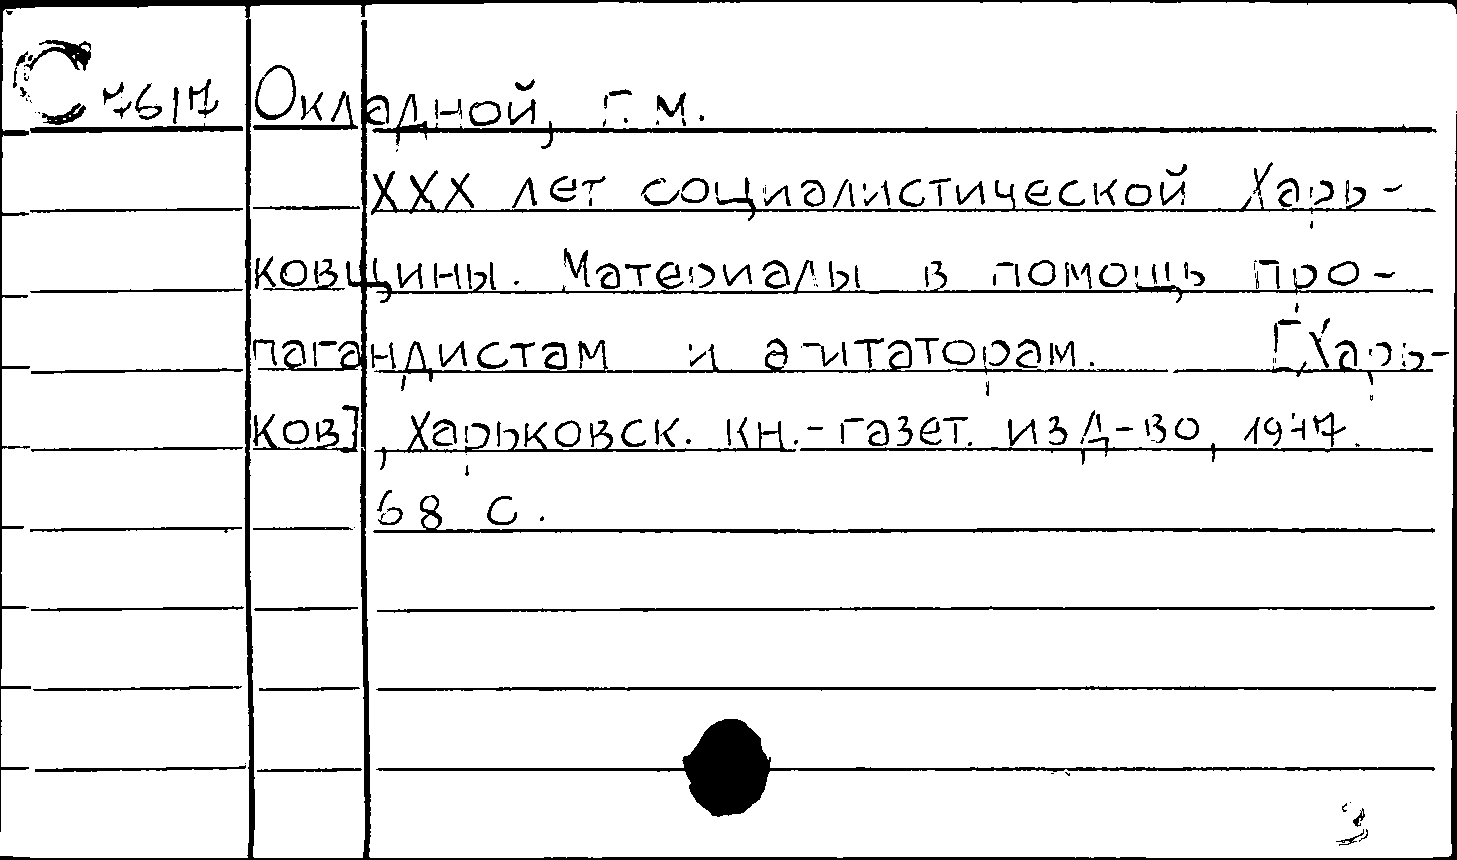 С 7617 Окладной, Г. М.
XXX лет социалистической Харь-
ковщины. Материалы в помощь про-
пагандистам и агитаторам. [Харь-
ков], Харьковск. кн.-газет. изд-во, 1947.
68 с.